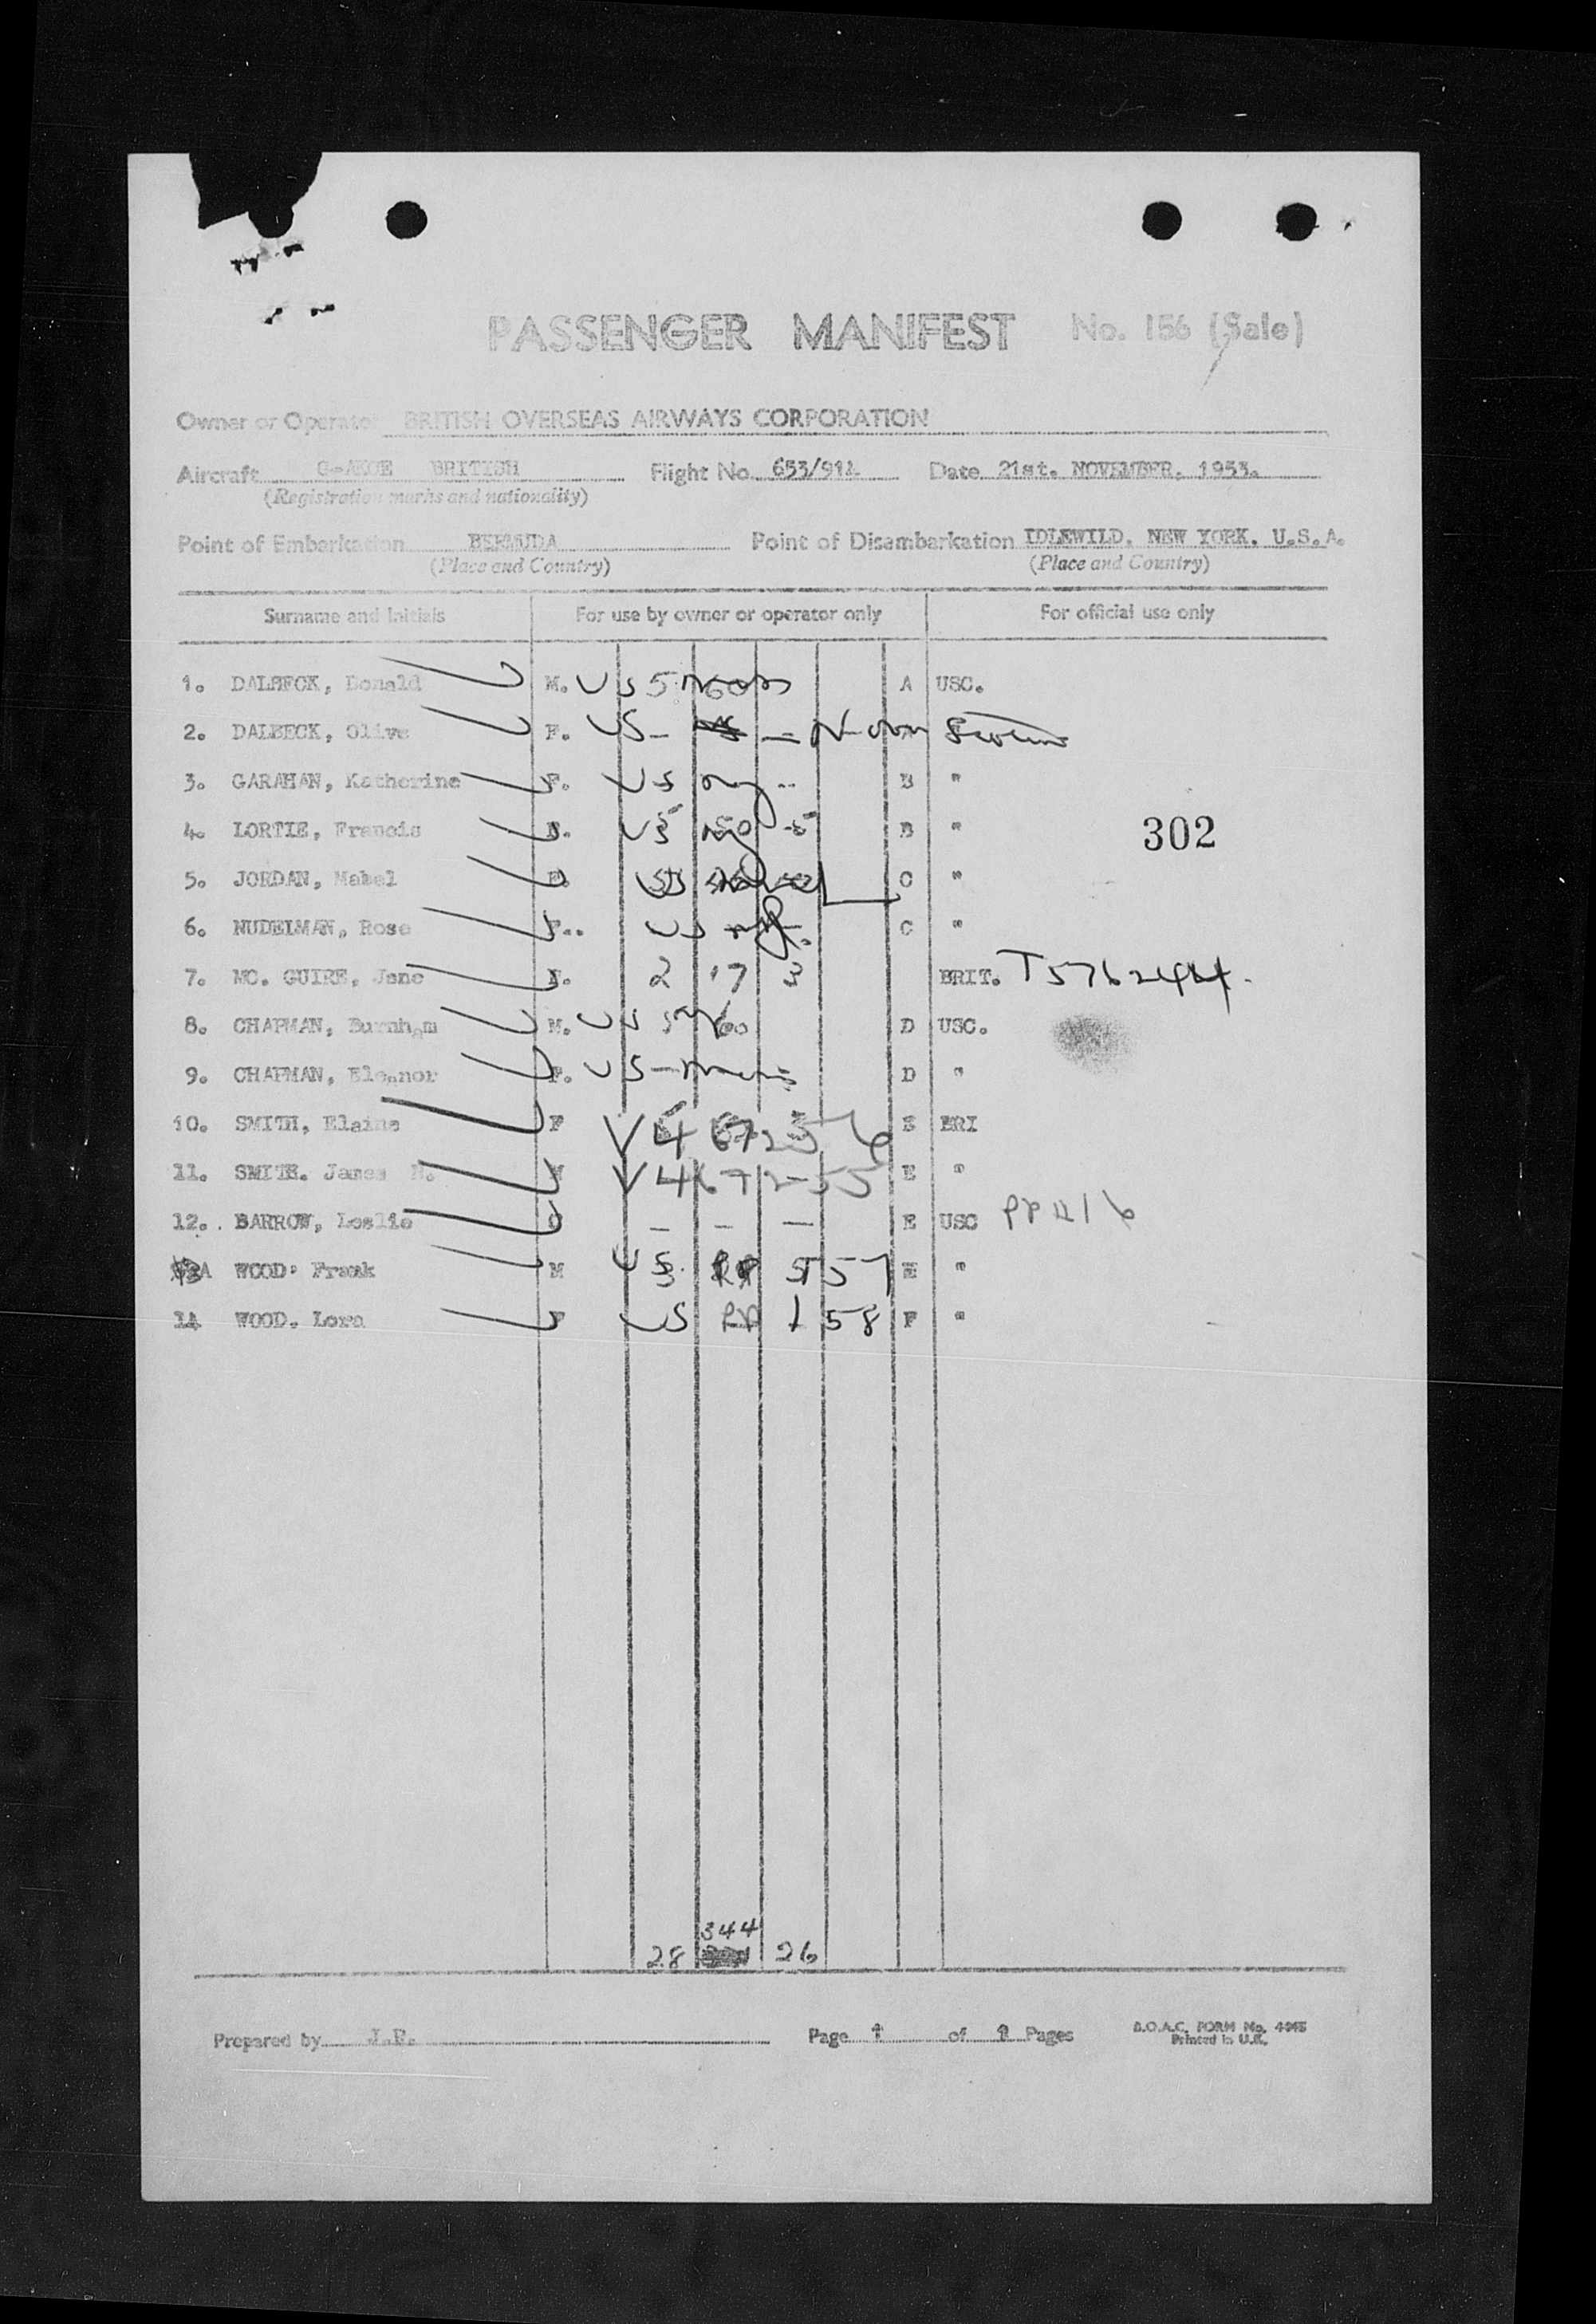 PASSENGER MANIFEST No. 156 (Sale)
Owner or Operator BRITISH OVERSEAS AIRWAYS CORPORATION
Aircraft BRITISH Flight No. 653/914 Date 21st. NOVEMBER, 1953.
(Registration marks and nationality)
Point of Embarkation BERMUDA Point of Disembarkation IDLEWILD, NEW YORK, U.S.A.
(Place and Country) (Place and Country)
Surname and Initials For use by owner or operator only For official use only
1. DALBECK, Donald M. US A USC.
2. DALBECK, Olive F. US
3. GARAHAN, Katherine F. US B "
4. LORTIE, Francis US B "
302
5. JORDAN, Mabel C "
6. NUDELMAN, Rose F.. US C "
7. MC. GUIRE, Jane 2 17 3 BRIT.
8. CHAPMAN, Burnham M. US D USC.
9. CHAPMAN, Eleanor F. US D "
10. SMITH, Elaine F V467256 E BRI
11. SMITH. James H. M V467255 E "
12. BARROW, Leslie C — — — E USC
WOOD. Frank M US PP 57 E "
14 WOOD. Lora F US PP 1 58 F "
344
28 26
Prepared by Page 1 of Pages
B.O.A.C. FORM No. 4045
Printed in U.K.